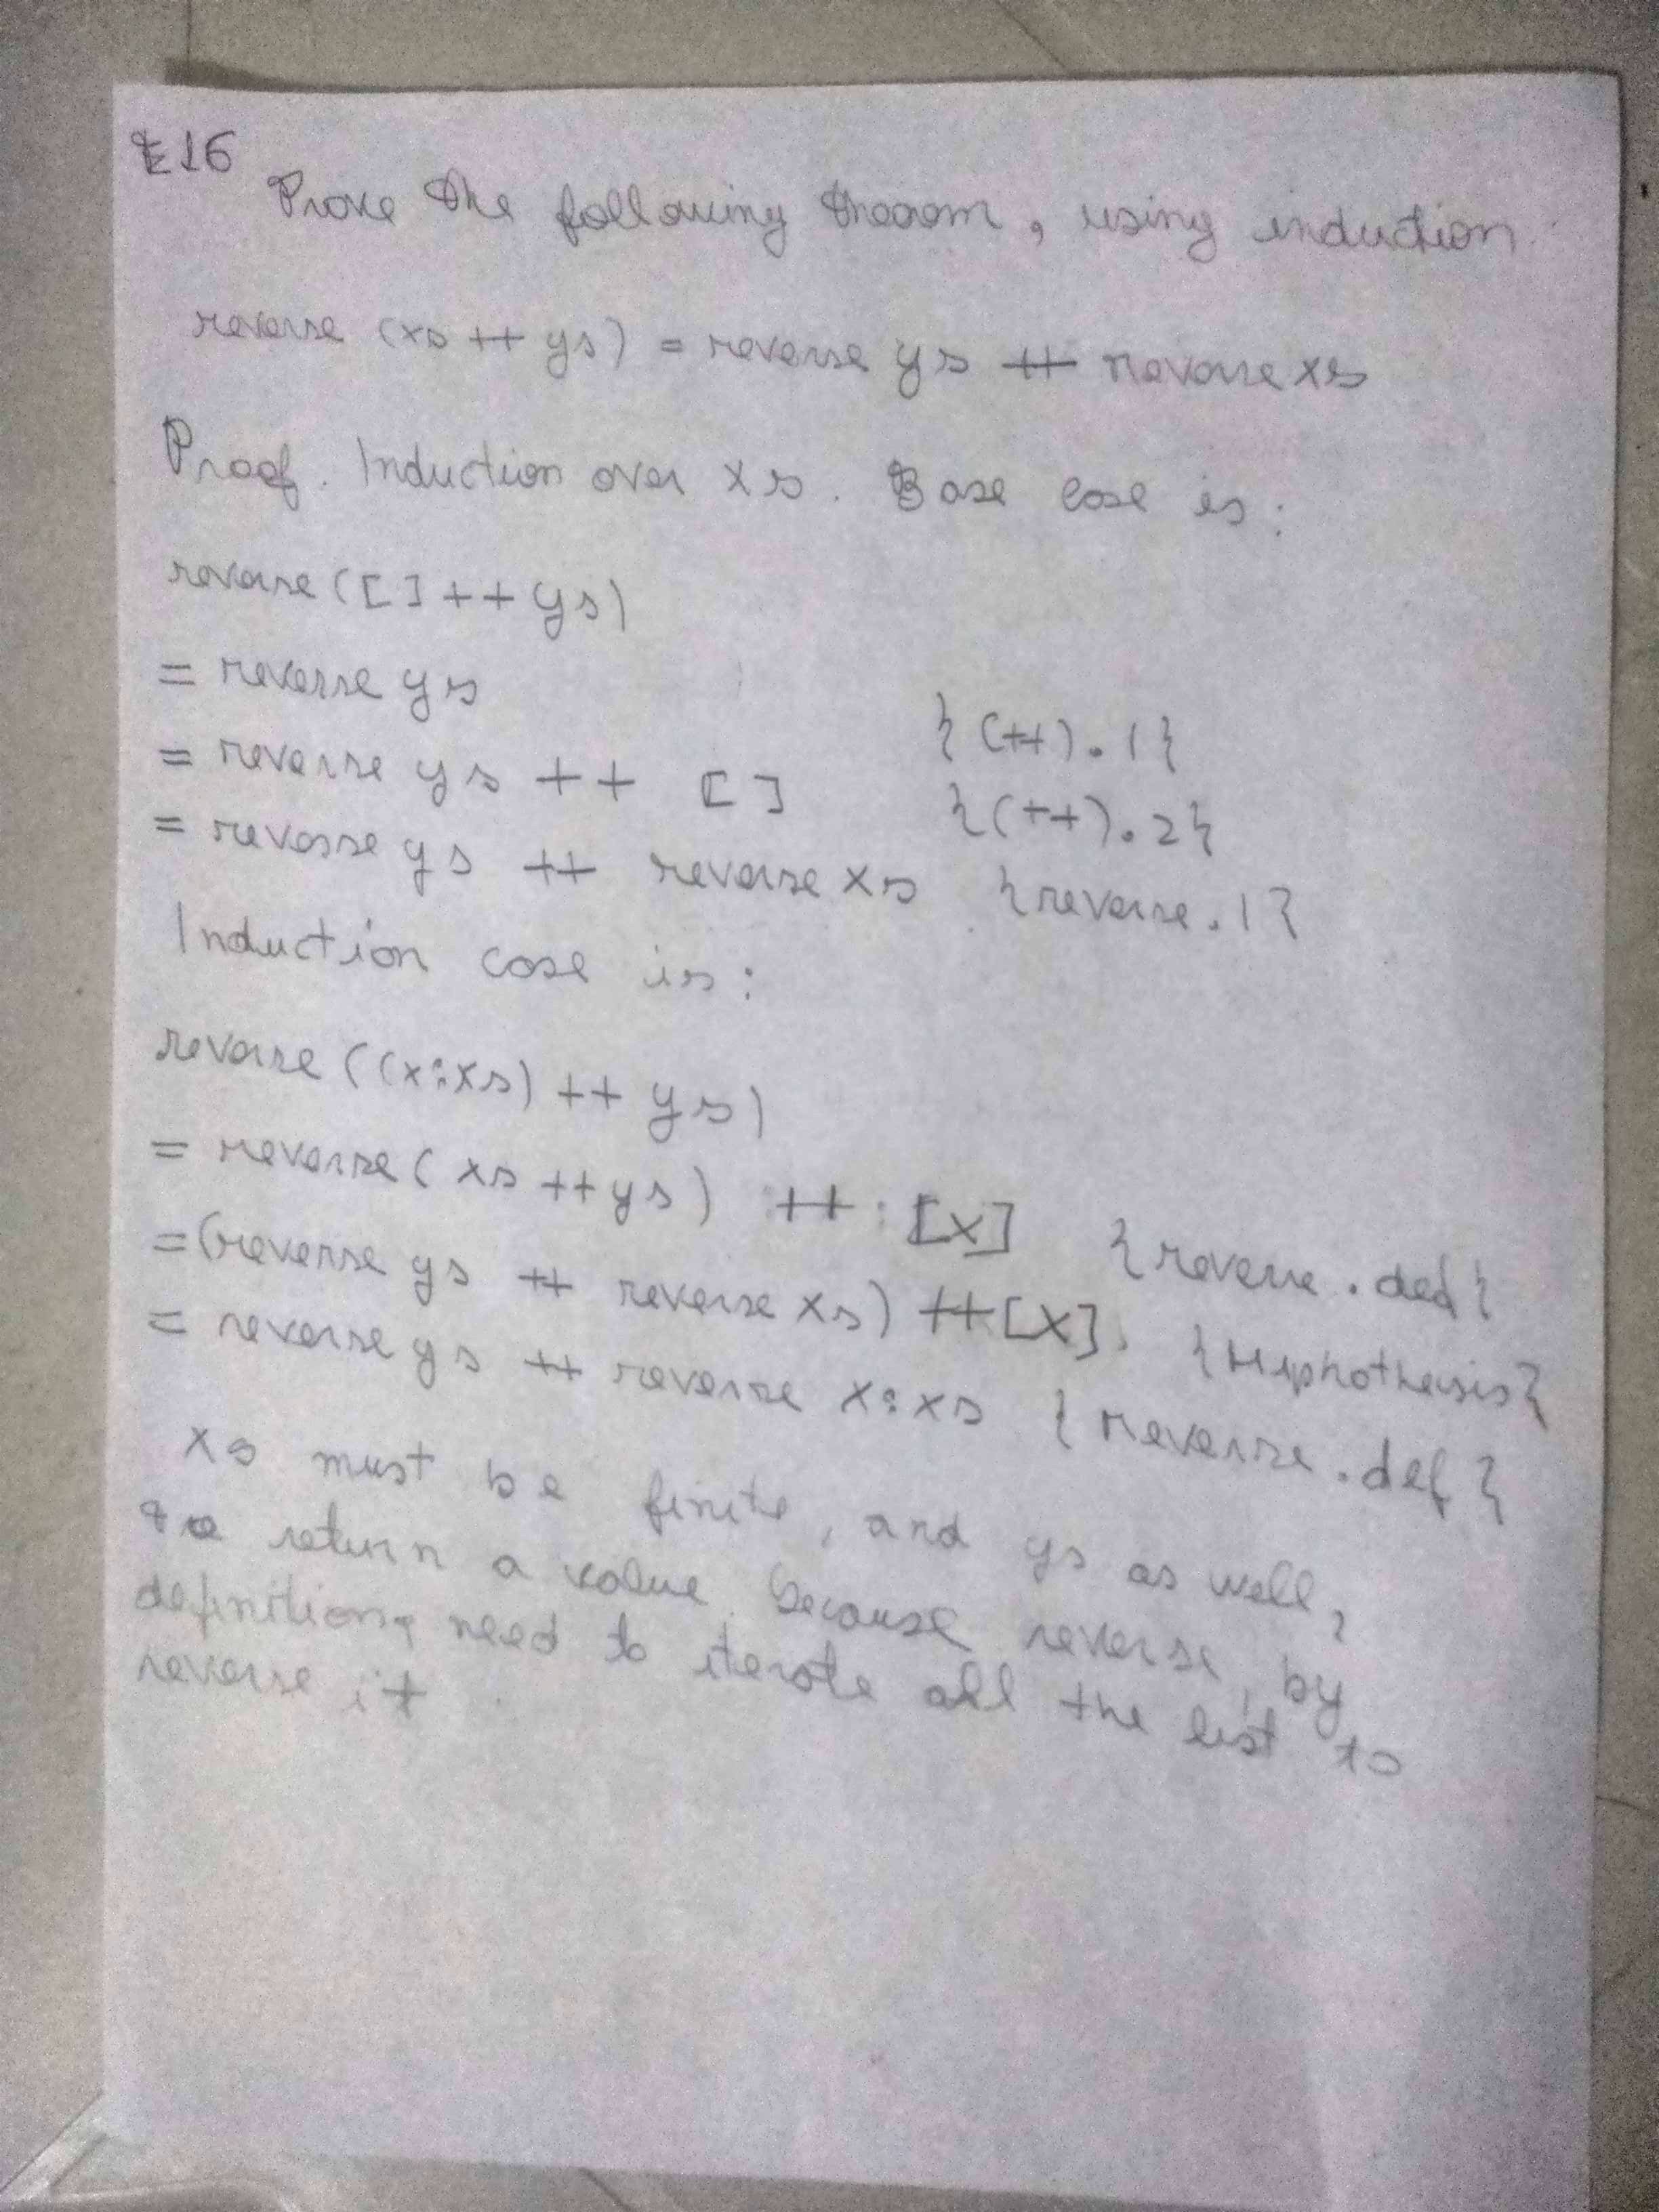 E16
Prove the following theorem, using induction
reverse (xs ++ ys) = reverse ys ++ reverse xs
Proof. Induction over xs. Base case is:
reverse ([] ++ ys)
= reverse ys {(++).1}
= reverse ys ++ [] {(++).2}
= reverse ys ++ reverse xs {reverse.1}
Induction case is:
reverse ((x:xs) ++ ys)
= reverse (xs ++ ys) ++ [x] {reverse.def}
= (reverse ys ++ reverse xs) ++ [x] {Hyphothesis}
= reverse ys ++ reverse x:xs {reverse.def}
xs must be finite, and ys as well,
return a value because reverse, by
definition, need to iterate all the list to
reverse it.